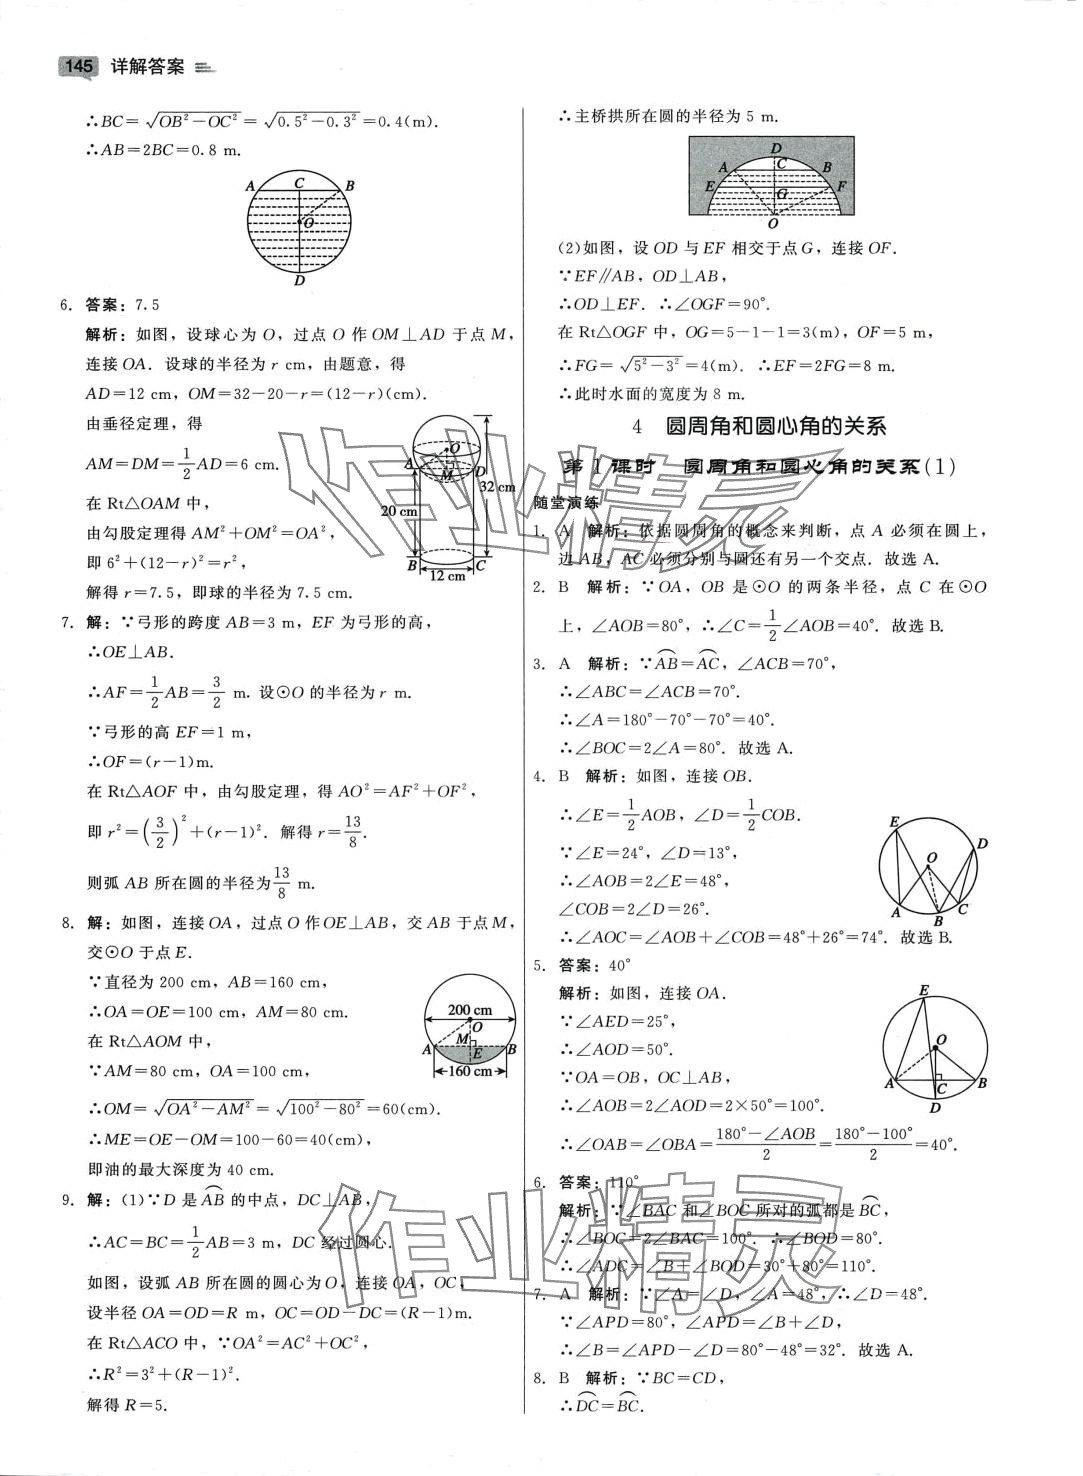 145 详解答案
∴BC=√(OB²-OC²)=√(0.5²-0.3²)=0.4(m).
∴AB=2BC=0.8 m.
A C B
O
D
6. 答案：7.5
解析：如图，设球心为 O，过点 O 作 OM⊥AD 于点 M，
连接 OA. 设球的半径为 r cm，由题意，得
AD=12 cm，OM=32-20-r=(12-r)(cm).
由垂径定理，得
AM=DM=1/2AD=6 cm.
在 Rt△OAM 中，
由勾股定理得 AM²+OM²=OA²，
即 6²+(12-r)²=r²，
解得 r=7.5，即球的半径为 7.5 cm.
O
A M D
32 cm
20 cm
B C
12 cm
7. 解：∵弓形的跨度 AB=3 m，EF 为弓形的高，
∴OE⊥AB.
∴AF=1/2AB=3/2 m. 设⊙O 的半径为 r m.
∵弓形的高 EF=1 m，
∴OF=(r-1)m.
在 Rt△AOF 中，由勾股定理，得 AO²=AF²+OF²，
即 r²=(3/2)²+(r-1)². 解得 r=13/8.
则弧 AB 所在圆的半径为13/8 m.
8. 解：如图，连接 OA，过点 O 作 OE⊥AB，交 AB 于点 M，
交⊙O 于点 E.
∵直径为 200 cm，AB=160 cm，
∴OA=OE=100 cm，AM=80 cm.
在 Rt△AOM 中，
∵AM=80 cm，OA=100 cm，
∴OM=√(OA²-AM²)=√(100²-80²)=60(cm).
∴ME=OE-OM=100-60=40(cm)，
即油的最大深度为 40 cm.
200 cm
O
M
A E B
160 cm
9. 解：(1)∵D 是 AB⌒ 的中点，DC⊥AB，
∴AC=BC=1/2AB=3 m，DC 经过圆心.
如图，设弧 AB 所在圆的圆心为 O，连接 OA，OC，
设半径 OA=OD=R m，OC=OD-DC=(R-1)m.
在 Rt△ACO 中，∵OA²=AC²+OC²，
∴R²=3²+(R-1)².
解得 R=5.
∴主桥拱所在圆的半径为 5 m.
D
A C B
E G F
O
(2)如图，设 OD 与 EF 相交于点 G，连接 OF.
∵EF∥AB，OD⊥AB，
∴OD⊥EF. ∴∠OGF=90°.
在 Rt△OGF 中，OG=5-1-1=3(m)，OF=5 m，
∴FG=√(5²-3²)=4(m). ∴EF=2FG=8 m.
∴此时水面的宽度为 8 m.
4 圆周角和圆心角的关系
第 1 课时 圆周角和圆心角的关系(1)
随堂演练
1. A 解析：依据圆周角的概念来判断，点 A 必须在圆上，
边 AB，AC 必须分别与圆还有另一个交点. 故选 A.
2. B 解析：∵OA，OB 是⊙O 的两条半径，点 C 在⊙O
上，∠AOB=80°，∴∠C=1/2∠AOB=40°. 故选 B.
3. A 解析：∵AB⌒=AC⌒，∠ACB=70°，
∴∠ABC=∠ACB=70°.
∴∠A=180°-70°-70°=40°.
∴∠BOC=2∠A=80°. 故选 A.
4. B 解析：如图，连接 OB.
∴∠E=1/2AOB，∠D=1/2COB.
∵∠E=24°，∠D=13°，
∴∠AOB=2∠E=48°，
∠COB=2∠D=26°.
∴∠AOC=∠AOB+∠COB=48°+26°=74°. 故选 B.
E D
O
A B C
5. 答案：40°
解析：如图，连接 OA.
∵∠AED=25°，
∴∠AOD=50°.
∵OA=OB，OC⊥AB，
∴∠AOB=2∠AOD=2×50°=100°.
∴∠OAB=∠OBA=(180°-∠AOB)/2=(180°-100°)/2=40°.
E
O
A C B
D
6. 答案：110°
解析：∵∠BAC 和∠BOC 所对的弧都是 BC⌒，
∴∠BOC=2∠BAC=100°. ∴∠BOD=80°.
∴∠ADC=∠B+∠BOD=30°+80°=110°.
7. A 解析：∵∠A=∠D，∠A=48°，∴∠D=48°.
∵∠APD=80°，∠APD=∠B+∠D，
∴∠B=∠APD-∠D=80°-48°=32°. 故选 A.
8. B 解析：∵BC=CD，
∴DC⌒=BC⌒.
作业精灵
作业精灵